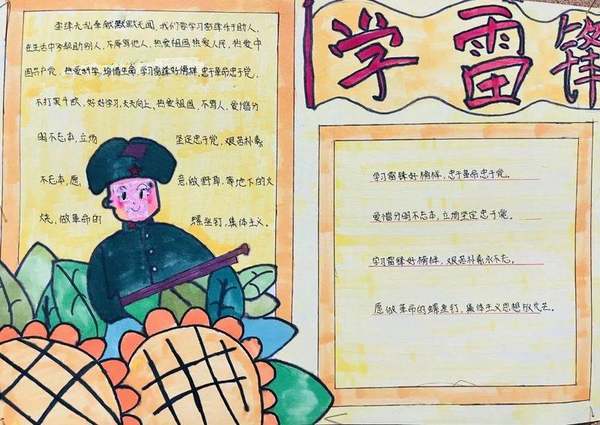 学雷锋
李锋无私奉献默默无闻，我们要学习雷锋乐于助人，
在生活中多帮助别人，不辱骂他人，热爱祖国热爱人民，热爱中
国共产党，热爱科学，珍惜生命，学习雷锋好榜样，忠于革命忠于党，
不打架斗殴，好好学习，天天向上，热爱祖国，不骂人，爱憎分
明不忘本，立场坚定忠于党，艰苦朴素
不忘本，愿意做野草，等地下的火
烧，做革命的螺丝钉，集体主义。
学习雷锋好榜样，忠于革命忠于党。
爱憎分明不忘本，立场坚定忠于党。
学习雷锋好榜样，艰苦朴素永不忘。
愿做革命的螺丝钉，集体主义思想放光芒。